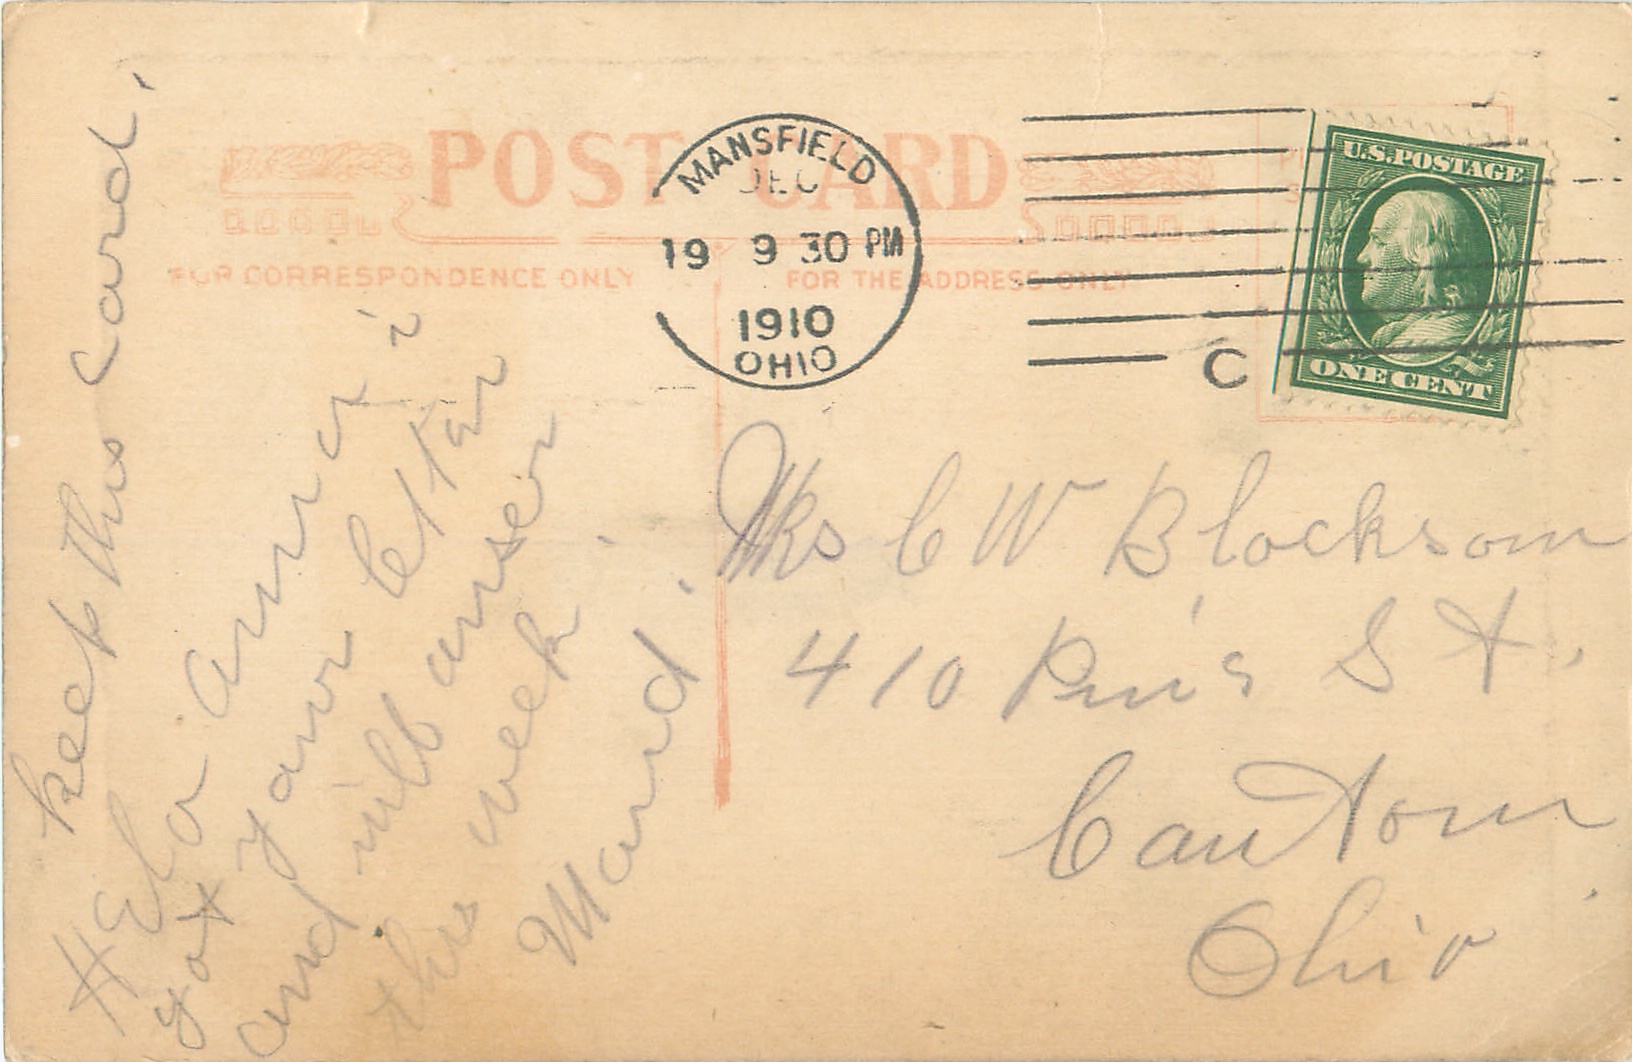 POST CARD
FOR CORRESPONDENCE ONLY
FOR THE ADDRESS ONLY
MANSFIELD
DEC
19 9 30 PM
1910
OHIO
C
U.S. POSTAGE
ONE CENT
keep this card.
Helo anna i
got your letter
and will anser
this week
Maud.
Mrs C W Blocksom
410 Pine St.
Canton
Ohio